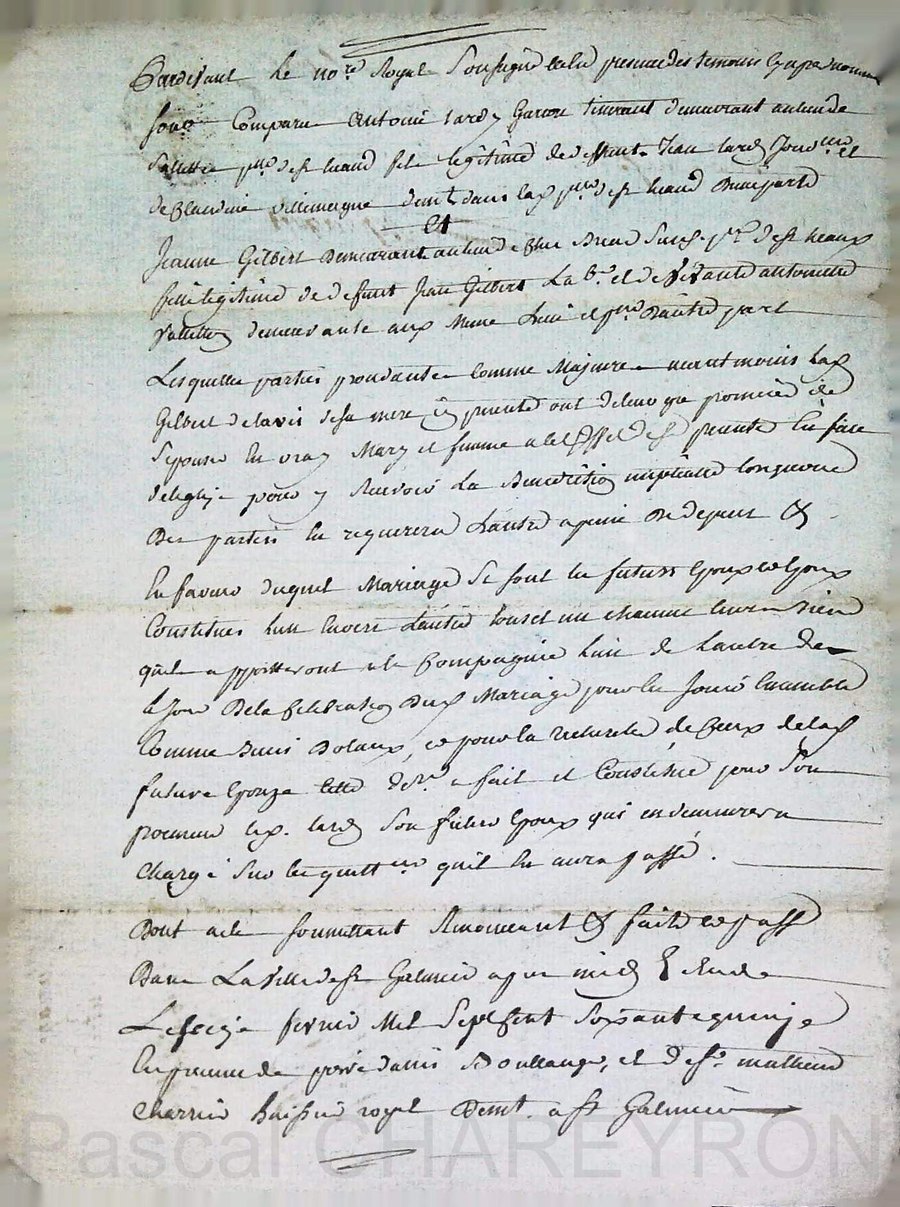 Pardevant le no.re Royal Soussigné et en presence des temoins cy apres nommés
sont Comparu Antoine tardy Garcon demeurant au lieu de
p.sse de st heand fils legitime de deffunt Jean tardy et
de Claudine Villemagne dem.t dans lad. p.sse de st heand d'une part
Et
Jeanne Gilbert Demeurant au lieu de p.sse de st heand
fille legitime de defunt Jean Gilbert Lab.r et de vivante antoinette
demeurante aux Meme Lieu et p.sse Dautre part
Lesquelles parties procedante Comme Majeure neantmoins lad.
Gilbert de lavis de sa mere cy presente ont de leur gré promis de
Sepouser en vray Mary et femme a leffet de se presenter en face
deglise pour y Recevoir La Benediction nuptialle lorsque lune
Des parties en requerera Lautre a peine De depens &
En faveur duquel Mariage Se sont les futurs Epoux et Epouse
Constitués lun envers Lautre tous et un chacuns leurs biens
quils apporteront a la Compagnie Lun de Lautre des
le Jour De la Celebration Dud. Mariage pour en Jouir ensemble
Comme Biens Dotaux, et pour la recherche de Ceux de lad.
future Epouze cette der.re a fait et Constitué pour son
procureur led. tardy Son futur Epoux qui en demeurera
Chargé Sur les quitt.ces quil en aura passé.
Dont acte soumettant Renoncant & fait et passé
Dans La ville de st Galmier apres midy Etude
Le seize fevrier Mil Sept Cent Soixante quinze
En presence de Boullanger, et de s.r mathieu
Charrin huissier royal Dem.t a st Galmier
Pascal CHAREYRON